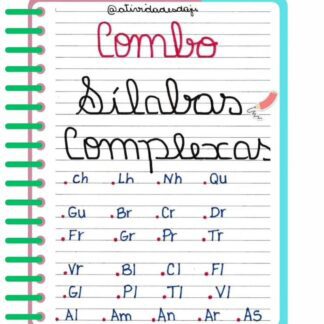 Combo
Sílabas
Complexas
.ch .Lh .Nh .Qu
.Gu .Br .Cr .Dr
.Fr .Gr .Pr .Tr
.Vr .Bl .Cl .Fl
.Gl .Pl .Tl .Vl
.Al .Am .An .Ar .AS